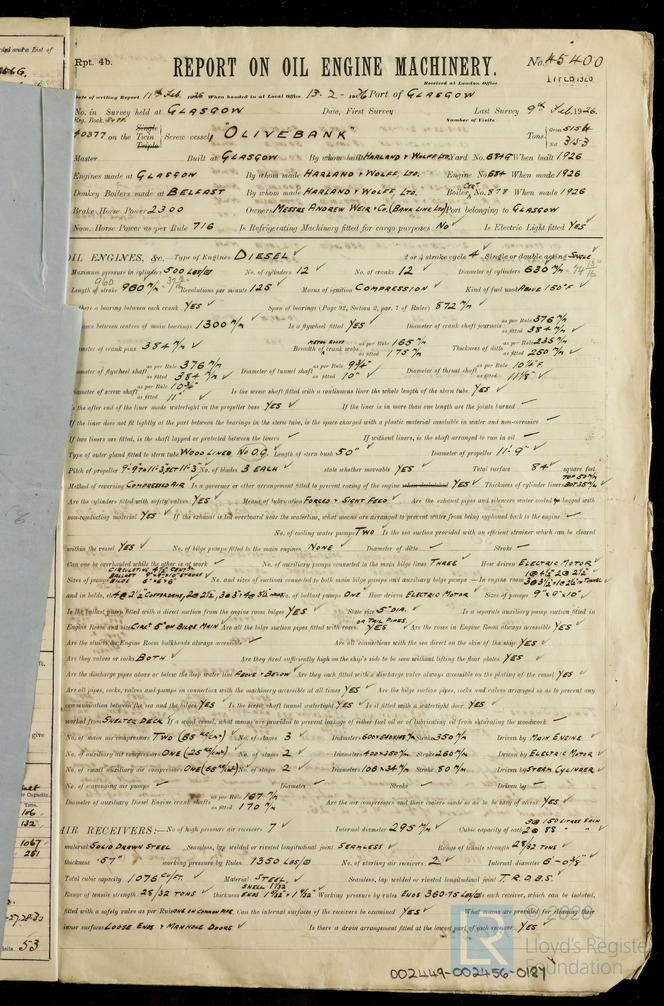 Rpt. 4b.
REPORT ON OIL ENGINE MACHINERY.
No. 45400
Received at London Office
17 FEB 1926
Date of writing Report 11th Feb. 1926 When handed in at Local Office 13-2-1926 Port of GLASGOW
No. in Survey held at GLASGOW Date, First Survey Last Survey 9th Feb. 1926.
Reg. Book. Number of Visits
40377 on the Single Twin Triple Screw vessel "OLIVEBANK" Tons Gross 5154 Net 3153
Master Built at GLASGOW By whom built HARLAND & WOLFF LTD. Yard No. 684G When built 1926
Engines made at GLASGOW By whom made HARLAND & WOLFF, LTD. Engine No. 684 When made 1926
Donkey Boilers made at BELFAST By whom made HARLAND & WOLFF LTD. Boiler No. 878 When made 1926
Brake Horse Power 2300 Owners MESSRS ANDREW WEIR & CO. (BANK LINE LTD) Port belonging to GLASGOW
Nom. Horse Power as per Rule 716 Is Refrigerating Machinery fitted for cargo purposes NO Is Electric Light fitted YES
OIL ENGINES, &c.—Type of Engines DIESEL 2 or 4 stroke cycle 4 Single or double acting SINGLE
Maximum pressure in cylinders 500 LBS/□" No. of cylinders 12 No. of cranks 12 Diameter of cylinders 630 m/m
Length of stroke 960 m/m Revolutions per minute 125 Means of ignition COMPRESSION Kind of fuel used ABOVE 150°F
Is there a bearing between each crank YES Span of bearings (Page 92, Section 2, par. 7 of Rules) 872 m/m
Distance between centres of main bearings 1300 m/m Is a flywheel fitted YES Diameter of crank shaft journals as per Rule 376 m/m as fitted 384 m/m
Diameter of crank pins 384 m/m Breadth of crank webs as per Rule 165 m/m as fitted 175 m/m Thickness of ditto as per Rule 235 m/m as fitted 250 m/m
Diameter of flywheel shaft as per Rule 376 m/m as fitted 384 m/m Diameter of tunnel shaft as per Rule 9¾" as fitted 10" Diameter of thrust shaft as per Rule as fitted 11⅛"
Diameter of screw shaft as per Rule as fitted 11" Is the screw shaft fitted with a continuous liner the whole length of the stern tube YES
Is the after end of the liner made watertight in the propeller boss YES If the liner is in more than one length are the joints burned —
If the liner does not fit tightly at the part between the bearings in the stern tube, is the space charged with a plastic material insoluble in water and non-corrosive —
If two liners are fitted, is the shaft lapped or protected between the liners — If without liners, is the shaft arranged to run in oil —
Type of outer gland fitted to stern tube WOOD LINED NO O.G. Length of stern bush 50" Diameter of propeller 11'-9"
Pitch of propeller No. of blades 3 EACH state whether moveable YES Total surface 84 square feet
Method of reversing COMPRESSED AIR Is a governor or other arrangement fitted to prevent racing of the engine YES Thickness of cylinder liners
Are the cylinders fitted with safety valves YES Means of lubrication FORCED & SIGHT FEED Are the exhaust pipes and silencers water cooled or lagged with
non-conducting material YES If the exhaust is led overboard near the waterline, what means are arranged to prevent water from being syphoned back to the engine —
No. of cooling water pumps TWO Is the sea suction provided with an efficient strainer which can be cleared
within the vessel YES No. of bilge pumps fitted to the main engines NONE Diameter of ditto — Stroke —
Can one be overhauled while the other is at work — No. of auxiliary pumps connected to the main bilge lines THREE How driven ELECTRIC MOTOR
Sizes of pumps No. and sizes of suctions connected to both main bilge pumps and auxiliary bilge pumps:—In engine room
and in holds, etc. No. of ballast pumps ONE How driven ELECTRIC MOTOR Sizes of pumps 9" × 9" × 10"
Is the ballast pump fitted with a direct suction from the engine room bilges YES State size 5" DIA. Is a separate auxiliary pump suction fitted in
Engine Room and size Are all the bilge suction pipes fitted with roses ON TAIL PIPES. YES Are the roses in Engine Room always accessible YES
Are the sluices on Engine Room bulkheads always accessible — Are all connections with the sea direct on the skin of the ship YES
Are they valves or cocks BOTH Are they fixed sufficiently high on the ship's side to be seen without lifting the floor plates YES
Are the discharge pipes above or below the deep water line ABOVE & BELOW Are they each fitted with a discharge valve always accessible on the plating of the vessel YES
Are all pipes, cocks, valves and pumps in connection with the machinery accessible at all times YES Are the bilge suction pipes, cocks and valves arranged so as to prevent any
communication between the sea and the bilges YES Is the screw shaft tunnel watertight YES Is it fitted with a watertight door YES
worked from SHELTER DECK If a wood vessel, what means are provided to prevent leakage of either fuel oil or of lubricating oil from saturating the woodwork —
No. of main air compressors TWO (65 KG/CM²) No. of stages 3 Diameters Stroke 350 m/m Driven by MAIN ENGINE
No. of auxiliary air compressors ONE (25 KG/CM²) No. of stages 2 Diameters 400 × 350 m/m Stroke 260 m/m Driven by ELECTRIC MOTOR
No. of small auxiliary air compressors ONE (65 KG/CM²) No. of stages 2 Diameters 108 × 34 m/m Stroke 80 m/m Driven by STEAM CYLINDER
No. of scavenging air pumps — Diameter — Stroke — Driven by —
Diameter of auxiliary Diesel Engine crank shafts as per Rule 167 m/m as fitted 170 m/m Are the air compressors and their coolers made so as to be easy of access YES
AIR RECEIVERS:—No. of high pressure air receivers 7 Internal diameter 295 m/m Cubic capacity of each 5 @ 150 LITRES EACH 2 @ 88 "
material SOLID DRAWN STEEL Seamless, lap welded or riveted longitudinal joint SEAMLESS Range of tensile strength 28/32 TONS
thickness .57" working pressure by Rules 1350 LBS/□" No. of starting air receivers 2 Internal diameter
Total cubic capacity 1076 C/FT. Material STEEL Seamless, lap welded or riveted longitudinal joint T.R.D.B.S.
Range of tensile strength 28/32 TONS thickness SHELL ENDS Working pressure by rules ENDS 360.75 LBS/□" Is each receiver, which can be isolated,
fitted with a safety valve as per Rule ONE ON COMMON PIPE Can the internal surfaces of the receivers be examined YES What means are provided for cleaning their
inner surfaces LOOSE ENDS & MANHOLE DOORS Is there a drain arrangement fitted at the lowest part of each receiver YES
© 2020
LR
Lloyd's Register
Foundation
002449-002456-0187
106
132
1067
251
53
give